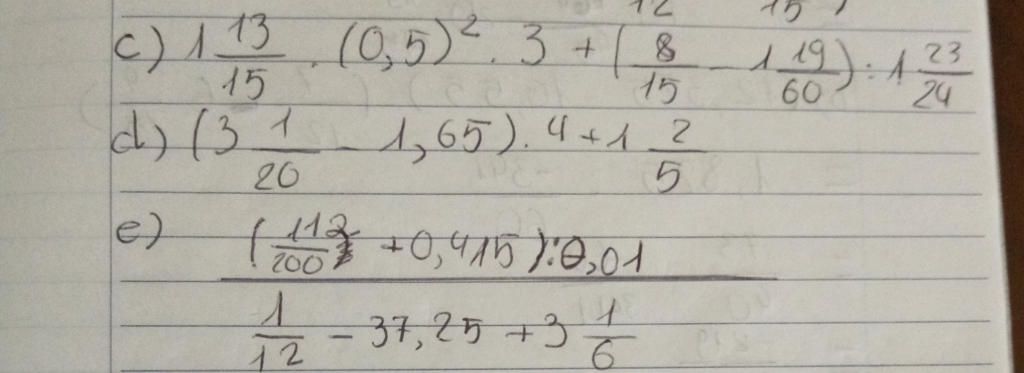 12 15
c) 1 13/15 · (0,5)² · 3 + (8/15 - 1 19/60) : 1 23/24
d) (3 1/20 - 1,65) · 4 + 1 2/5
e) (112/200 + 0,415) : 0,01
1/12 - 37,25 + 3 1/6